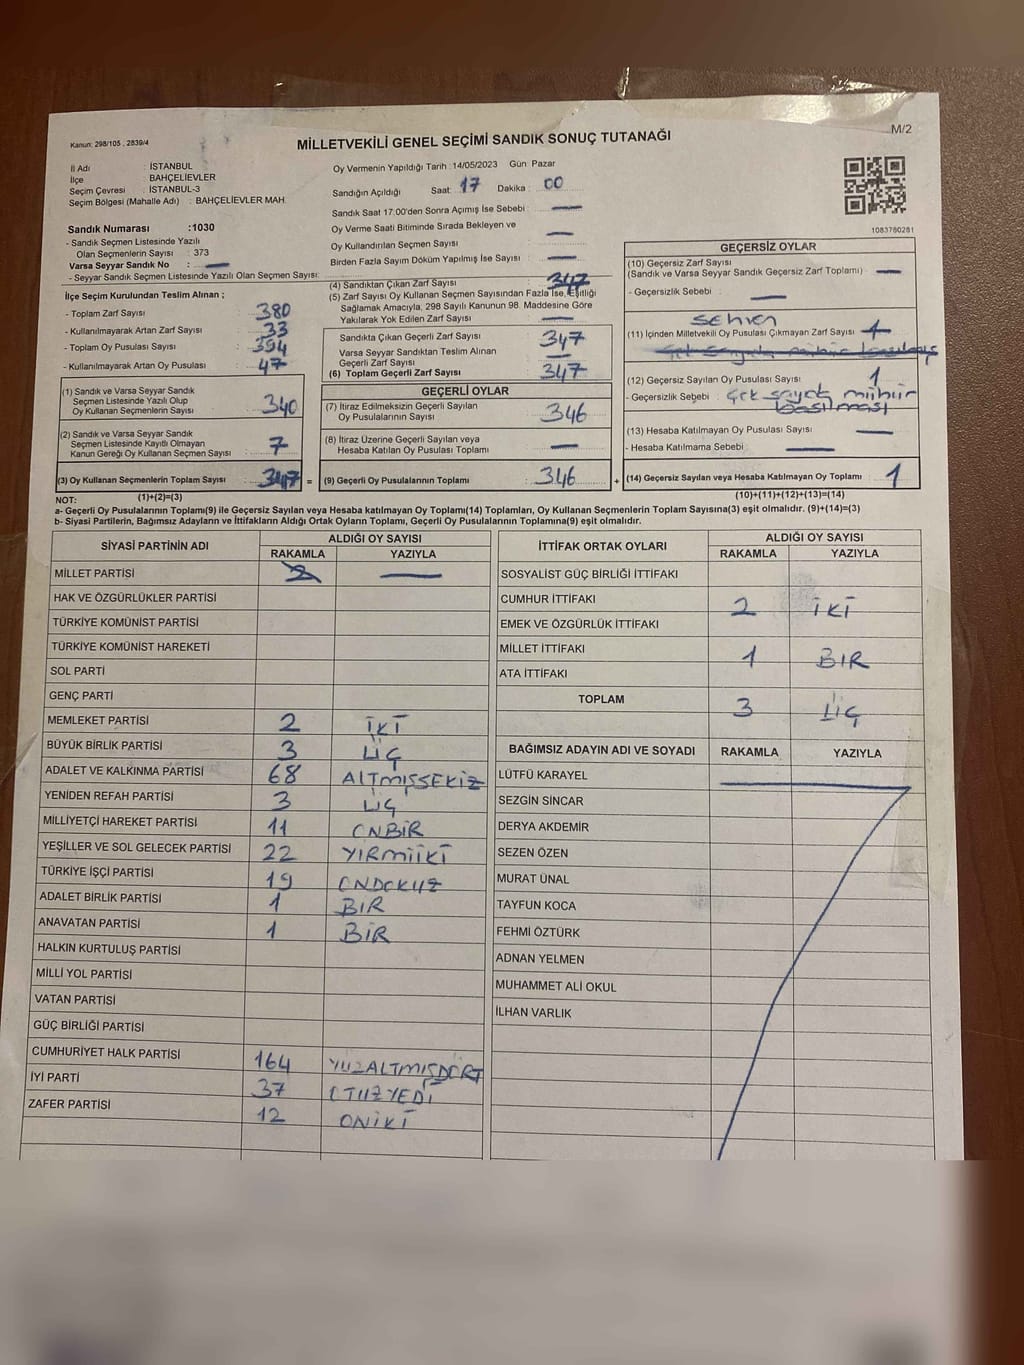 M/2
Kanun: 298/105 , 2839/4
MİLLETVEKİLİ GENEL SEÇİMİ SANDIK SONUÇ TUTANAĞI
İl Adı : İSTANBUL
İlçe : BAHÇELİEVLER
Seçim Çevresi : İSTANBUL-3
Seçim Bölgesi (Mahalle Adı) : BAHÇELİEVLER MAH.
Sandık Numarası :1030
- Sandık Seçmen Listesinde Yazılı
Olan Seçmenlerin Sayısı : 373
Varsa Seyyar Sandık No : —
- Seyyar Sandık Seçmen Listesinde Yazılı Olan Seçmen Sayısı:
Oy Vermenin Yapıldığı Tarih : 14/05/2023 Gün: Pazar
Sandığın Açıldığı Saat: 17 Dakika : 00
Sandık Saat 17:00'den Sonra Açımış İse Sebebi : —
Oy Verme Saati Bitiminde Sırada Bekleyen ve
Oy Kullandırılan Seçmen Sayısı : —
Birden Fazla Sayım Döküm Yapılmış İse Sayısı : —
1083760281
İlçe Seçim Kurulundan Teslim Alınan ;
- Toplam Zarf Sayısı : 380
- Kullanılmayarak Artan Zarf Sayısı : 33
- Toplam Oy Pusulası Sayısı : 394
- Kullanılmayarak Artan Oy Pusulası : 47
(1) Sandık ve Varsa Seyyar Sandık
Seçmen Listesinde Yazılı Olup
Oy Kullanan Seçmenlerin Sayısı : 340
(2) Sandık ve Varsa Seyyar Sandık
Seçmen Listesinde Kayıtlı Olmayan
Kanun Gereği Oy Kullanan Seçmen Sayısı : 7
(3) Oy Kullanan Seçmenlerin Toplam Sayısı : 347 =
(4) Sandıktan Çıkan Zarf Sayısı : 347
(5) Zarf Sayısı Oy Kullanan Seçmen Sayısından Fazla İse, Eşitliği
Sağlamak Amacıyla, 298 Sayılı Kanunun 98. Maddesine Göre
Yakılarak Yok Edilen Zarf Sayısı : —
Sandıkta Çıkan Geçerli Zarf Sayısı : 347
Varsa Seyyar Sandıktan Teslim Alınan
Geçerli Zarf Sayısı : —
(6) Toplam Geçerli Zarf Sayısı : 347
GEÇERLİ OYLAR
(7) İtiraz Edilmeksizin Geçerli Sayılan
Oy Pusulalarının Sayısı : 346
(8) İtiraz Üzerine Geçerli Sayılan veya
Hesaba Katılan Oy Pusulası Toplamı : —
(9) Geçerli Oy Pusulalarının Toplamı : 346 +
GEÇERSİZ OYLAR
(10) Geçersiz Zarf Sayısı
(Sandık ve Varsa Seyyar Sandık Geçersiz Zarf Toplamı) : —
- Geçersizlik Sebebi : —
sehven
(11) İçinden Milletvekili Oy Pusulası Çıkmayan Zarf Sayısı : 1
(12) Geçersiz Sayılan Oy Pusulası Sayısı : 1
- Geçersizlik Sebebi : çok sayıda mühür
basılması
(13) Hesaba Katılmayan Oy Pusulası Sayısı : —
- Hesaba Katılmama Sebebi : —
(14) Geçersiz Sayılan veya Hesaba Katılmayan Oy Toplamı : 1
NOT: (1)+(2)=(3)
(10)+(11)+(12)+(13)=(14)
a- Geçerli Oy Pusulalarının Toplamı(9) ile Geçersiz Sayılan veya Hesaba katılmayan Oy Toplamı(14) Toplamları, Oy Kullanan Seçmenlerin Toplam Sayısına(3) eşit olmalıdır. (9)+(14)=(3)
b- Siyasi Partilerin, Bağımsız Adayların ve İttifakların Aldığı Ortak Oyların Toplamı, Geçerli Oy Pusulalarının Toplamına(9) eşit olmalıdır.
SİYASİ PARTİNİN ADI ALDIĞI OY SAYISI
RAKAMLA YAZIYLA
MİLLET PARTİSİ 2 —
HAK VE ÖZGÜRLÜKLER PARTİSİ
TÜRKİYE KOMÜNİST PARTİSİ
TÜRKİYE KOMÜNİST HAREKETİ
SOL PARTİ
GENÇ PARTİ
MEMLEKET PARTİSİ 2 İKİ
BÜYÜK BİRLİK PARTİSİ 3 ÜÇ
ADALET VE KALKINMA PARTİSİ 68 ALTMIŞSEKİZ
YENİDEN REFAH PARTİSİ 3 ÜÇ
MİLLİYETÇİ HAREKET PARTİSİ 11 ONBİR
YEŞİLLER VE SOL GELECEK PARTİSİ 22 YİRMİİKİ
TÜRKİYE İŞÇİ PARTİSİ 19 ONDOKUZ
ADALET BİRLİK PARTİSİ 1 BİR
ANAVATAN PARTİSİ 1 BİR
HALKIN KURTULUŞ PARTİSİ
MİLLİ YOL PARTİSİ
VATAN PARTİSİ
GÜÇ BİRLİĞİ PARTİSİ
CUMHURİYET HALK PARTİSİ 164 YÜZALTMIŞDÖRT
İYİ PARTİ 37 OTUZYEDİ
ZAFER PARTİSİ 12 ONİKİ
İTTİFAK ORTAK OYLARI ALDIĞI OY SAYISI
RAKAMLA YAZIYLA
SOSYALİST GÜÇ BİRLİĞİ İTTİFAKI
CUMHUR İTTİFAKI 2 İKİ
EMEK VE ÖZGÜRLÜK İTTİFAKI
MİLLET İTTİFAKI 1 BİR
ATA İTTİFAKI
TOPLAM 3 ÜÇ
BAĞIMSIZ ADAYIN ADI VE SOYADI RAKAMLA YAZIYLA
LÜTFÜ KARAYEL
SEZGİN SİNCAR
DERYA AKDEMİR
SEZEN ÖZEN
MURAT ÜNAL
TAYFUN KOCA
FEHMİ ÖZTÜRK
ADNAN YELMEN
MUHAMMET ALİ OKUL
İLHAN VARLIK